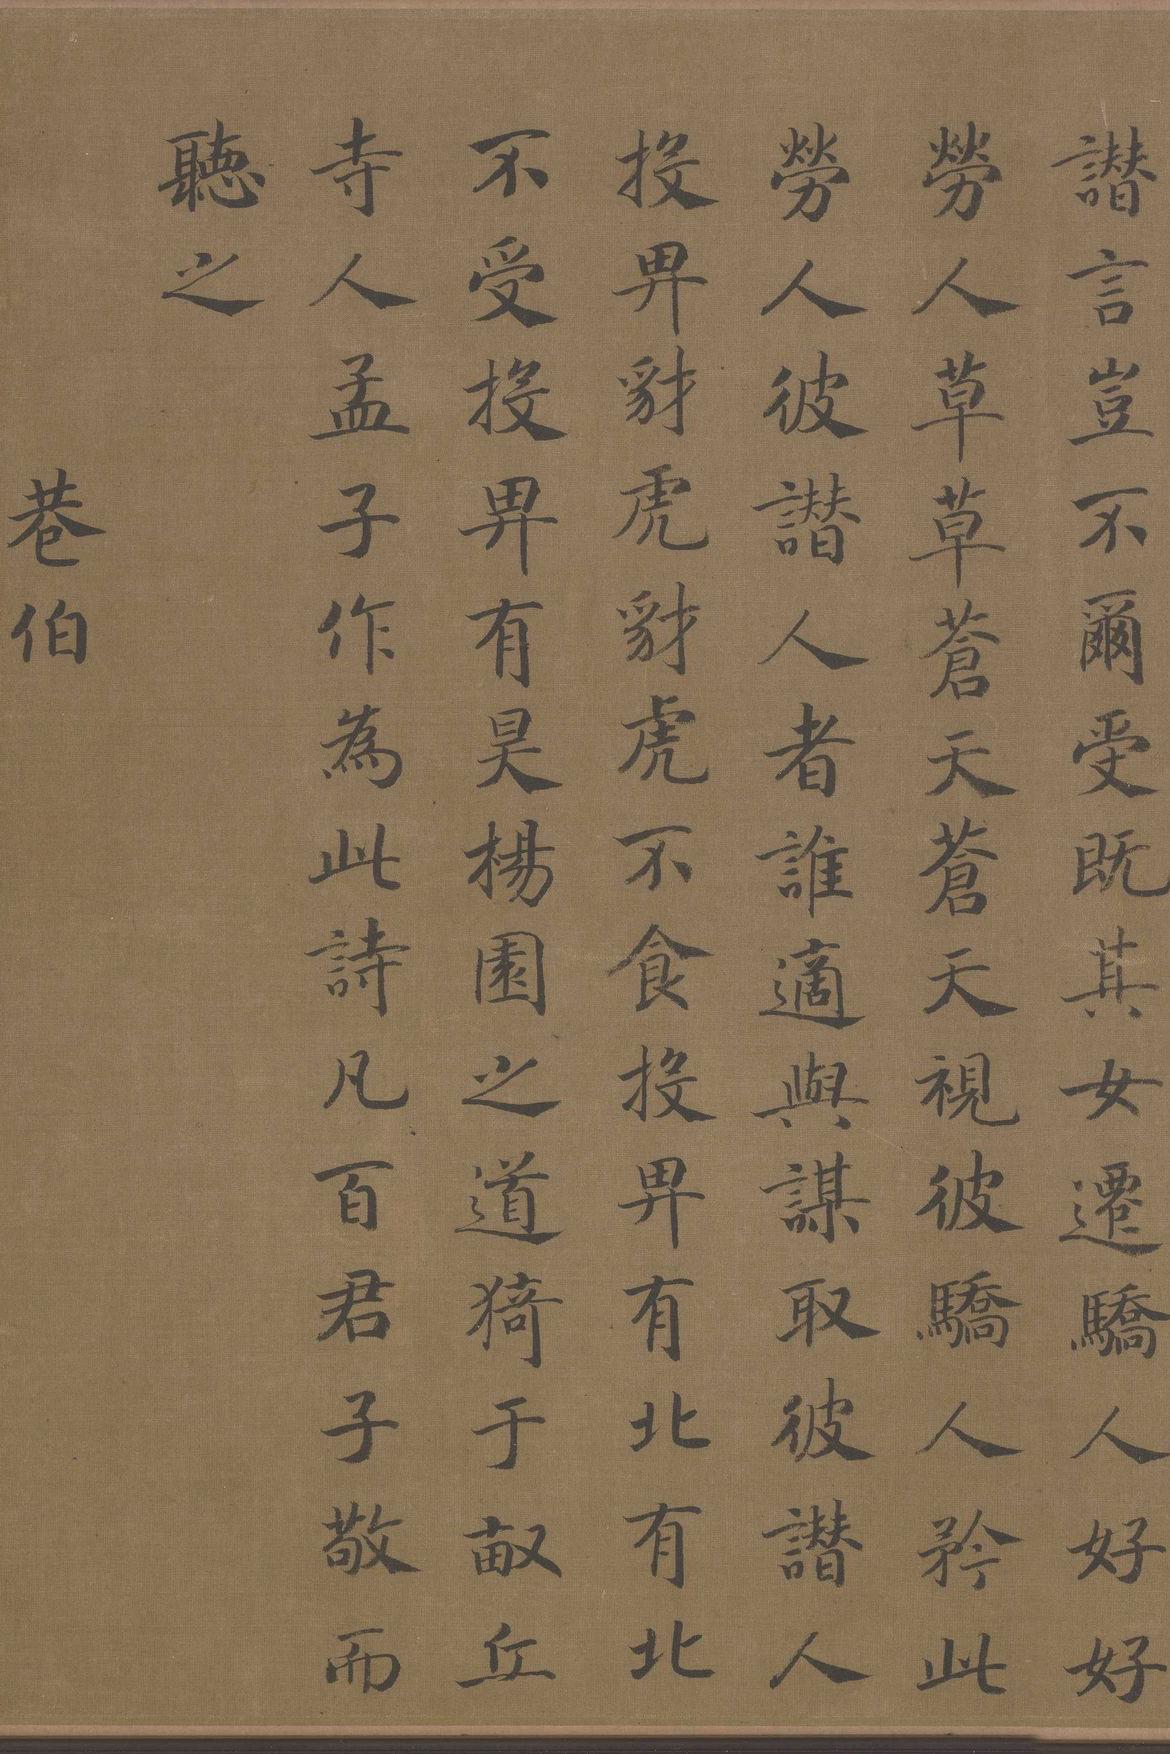 譖言豈不爾受既其女遷驕人好好
勞人草草蒼天蒼天視彼驕人矜此
勞人彼譖人者誰適與謀取彼譖人
投畀豺虎豺虎不食投畀有北有北
不受投畀有昊楊園之道猗于畝丘
寺人孟子作為此詩凡百君子敬而
聽之
巷伯